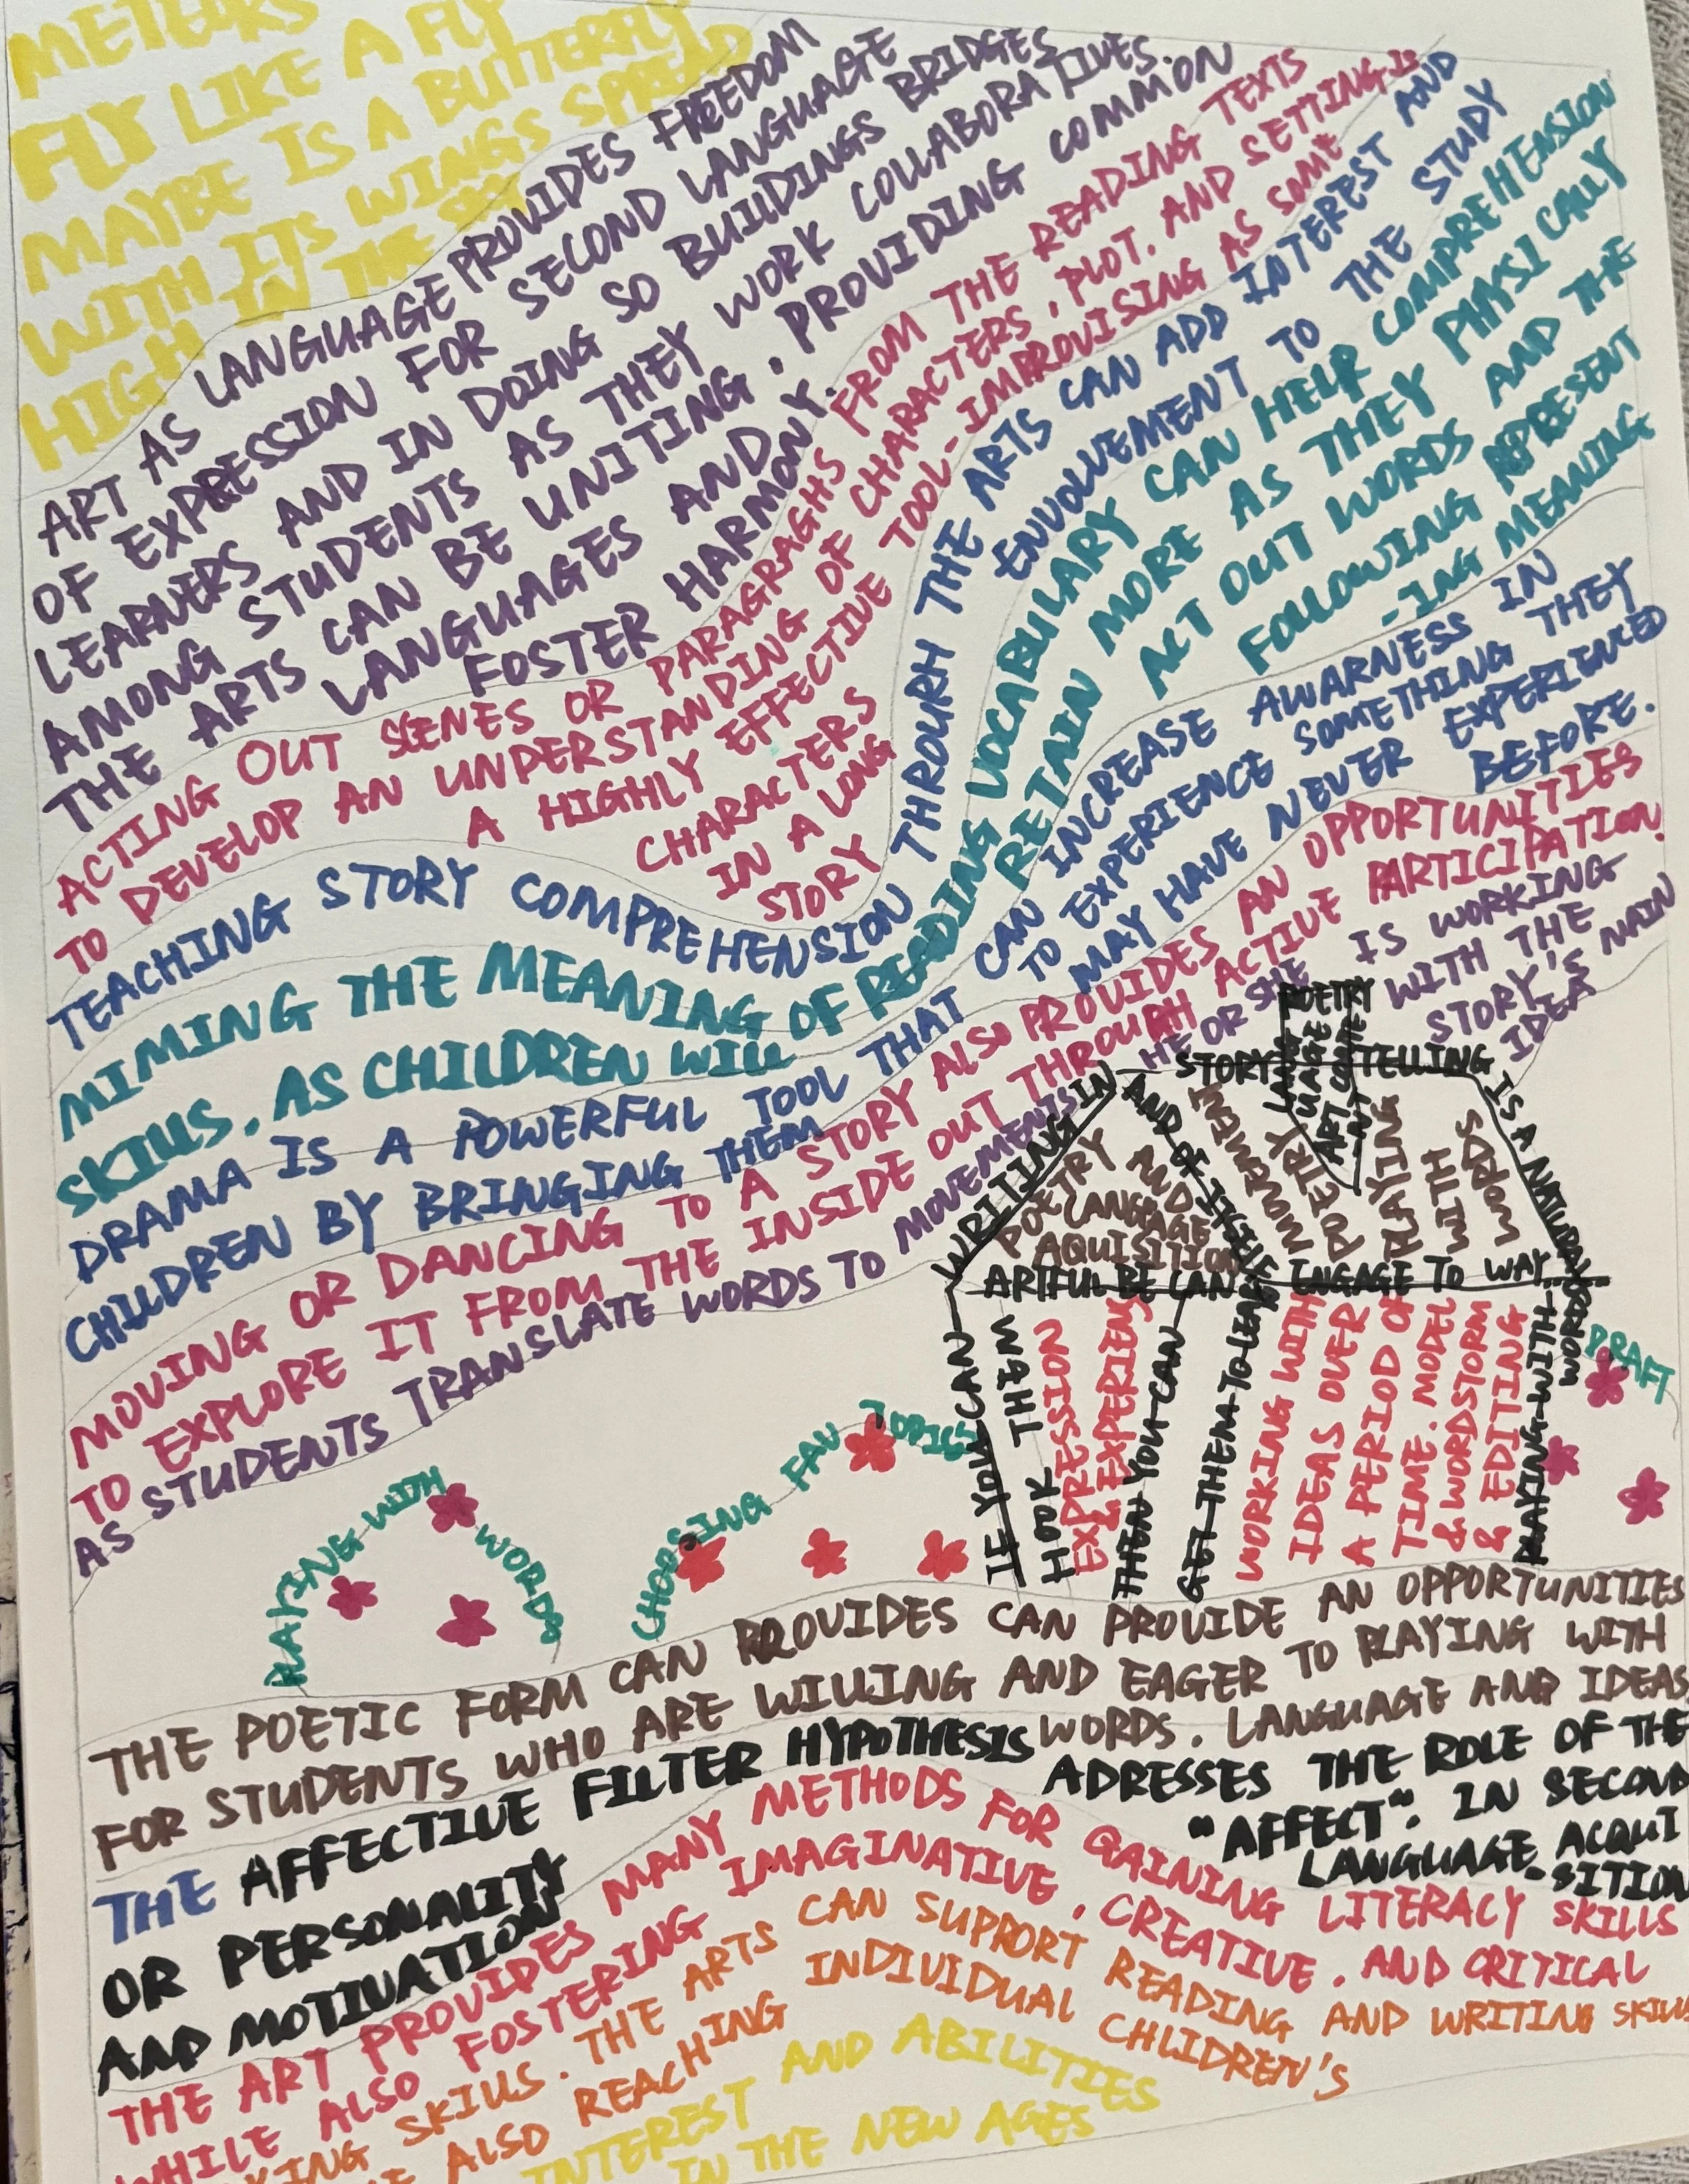 METEORS
FLY LIKE A FLY
MAYBE IS A BUTTERFLY
WITH ITS WINGS SPREAD
HIGH IN THE SKY
ART AS LANGUAGE PROVIDES FREEDOM
OF EXPRESSION FOR SECOND LANGUAGE
LEARNERS AND IN DOING SO BUILDINGS BRIDGES
AMONG STUDENTS AS THEY WORK COLLABORATIVES.
THE ARTS CAN BE UNITING, PROVIDING COMMON
LANGUAGES AND
FOSTER HARMONY.
ACTING OUT SCENES OR PARAGRAGHS FROM THE READING TEXTS
TO DEVELOP AN UNDERSTANDING OF CHARACTERS, PLOT. AND SETTING IS
A HIGHLY EFFECTIVE TOOL-IMPROVISING AS SOME
CHARACTERS
IN A LONG
STORY
TEACHING STORY COMPREHENSION THROURH THE ARTS CAN ADD INTERPST AND
ENVOLVEMENT TO THE STUDY
MIMING THE MEANING OF READING VOCABULARY CAN HELP COMPREHENSION
SKILLS. AS CHILDREN WILL RETAIN MORE AS THEY PHYSICALLY
ACT OUT WORDS AND THE
FOLLOWING REPRESENT
-ING MEANING
DRAMA IS A POWERFUL TOOL THAT CAN INCREASE AWARNESS IN
CHILDREN BY BRINGING THEM TO EXPERIENCE SOMETHING THEY
MAY HAVE NEVER EXPERIENCED
BEFORE.
MOVING OR DANCING TO A STORY ALSO PROVIDES AN OPPORTUNITIES
TO EXPLORE IT FROM THE INSIDE OUT THROUGH ACTIVE PARTICIPATION.
AS STUDENTS TRANSLATE WORDS TO MOVEMENTS HE OR SHE IS WORKING
WITH THE
STORY'S MAIN
IDEA
POETRY
LANGUAGE
ART
STORY TELLING
IS A NATURAL
WRITING IN
AND
POETRY
AND
LANGAGE
AQUISITION
MOVEMENT
POETRY
PLAYING
WITH
WORDS
ARTFUL BE CAN ENGAGE TO WAY
IF YOU CAN
HOOK THEM
EXPRESSION
& EXPERIENS
THEN YOU CAN
GET THEM TO LEARN
WORKING WITH
IDEAS OVER
A PERIOD OF
TIME. MODEL
& WORDSTORM
& EDITING
PLAYING WITH
WORDS
DRAFT
PLAYING WITH WORDS
CHOOSING FAV TOPICS
THE POETIC FORM CAN PROVIDES CAN PROVIDE AN OPPORTUNITIES
FOR STUDENTS WHO ARE WILLING AND EAGER TO PLAYING WITH
WORDS. LANGUAGE AND IDEAS
THE AFFECTIVE FILTER HYPOTHESIS ADRESSES THE ROLE OF THE
"AFFECT". IN SECOND
LANGUAGE ACQUI
-SITION
OR PERSONALITY
AND MOTIVATION
THE ART PROVIDES MANY METHODS FOR GAINING LITERACY SKILLS
WHILE ALSO FOSTERING IMAGINATIVE, CREATIVE. AND CRITICAL
SKILLS. THE ARTS CAN SUPPORT READING AND WRITING SKILLS
ALSO REACHING INDIVIDUAL CHLIDREN'S
INTEREST AND ABILITIES
IN THE NEW AGES